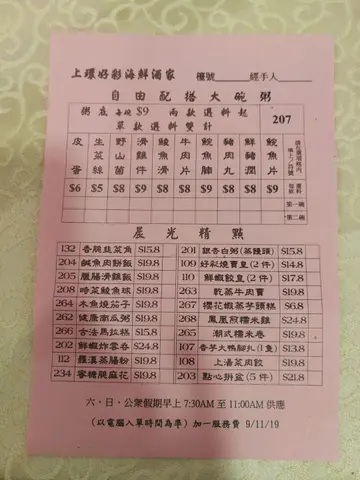 上環好彩海鮮酒家 檯號 經手人
自由配搭大碗粥
粥底每碗$9 兩款選料起
單款選料雙計
207
皮蛋 生菜絲 野山菌 滑雞件 鯪魚滑 牛肉片 鯇魚腩 豬肉丸 鮮豬潤 鯇魚片
$6 $5 $8 $9 $8 $9 $9 $8 $8 $9
選料
第一碗
第二碗
晨光精點
132 香脆韮菜角 S15.8 201 銀杏白粥(蒸饅頭) S15.8
204 鹹魚肉餅飯 S19.8 109 好彩燒賣皇(2件) S14.8
205 臘腸滑雞飯 S19.8 110 鮮蝦餃皇(2件) S17.8
208 時菜鯪魚球 S19.8 263 乾蒸牛肉賣 S19.8
264 木魚燒茄子 S19.8 267 櫻花蝦蒸芋頭糕 S6.8
262 健康南瓜粥 S19.8 268 鳳凰煎糯米雞 S24.8
266 古法馬拉糕 S15.8 265 潮式糯米卷 S19.8
202 鮮蝦炸雲吞 S24.8 107 香芋大鴨腳札(1隻) S13.8
112 羅漢蒸腸粉 S19.8 108 上湯菜肉餃 S19.8
234 蜜糖脆麻花 S19.8 203 點心拼盆(5件) S21.8
六、日、公衆假期早上 7:30AM 至 11:00AM 供應
(以電腦入單時間為準) 加一服務費 9/11/19